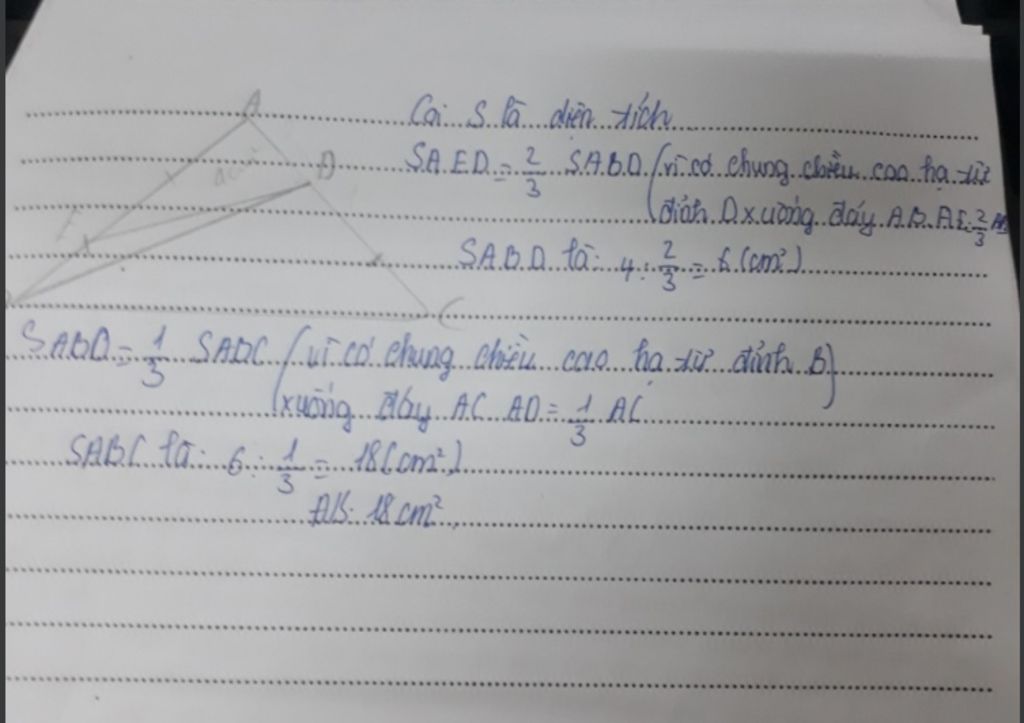 A
Gọi S là diện tích
D
SAED = 2/3 SABD (vì có chung chiều cao hạ từ
E
đỉnh D xuống đáy AB. AE = 2/3 AB)
SABD là: 4 : 2/3 = 6 (cm²)
C
SABD = 1/3 SABC (vì có chung chiều cao hạ từ đỉnh B
xuống đáy AC AD = 1/3 AC)
SABC là: 6 : 1/3 = 18 (cm²)
Đ/S: 18 cm²